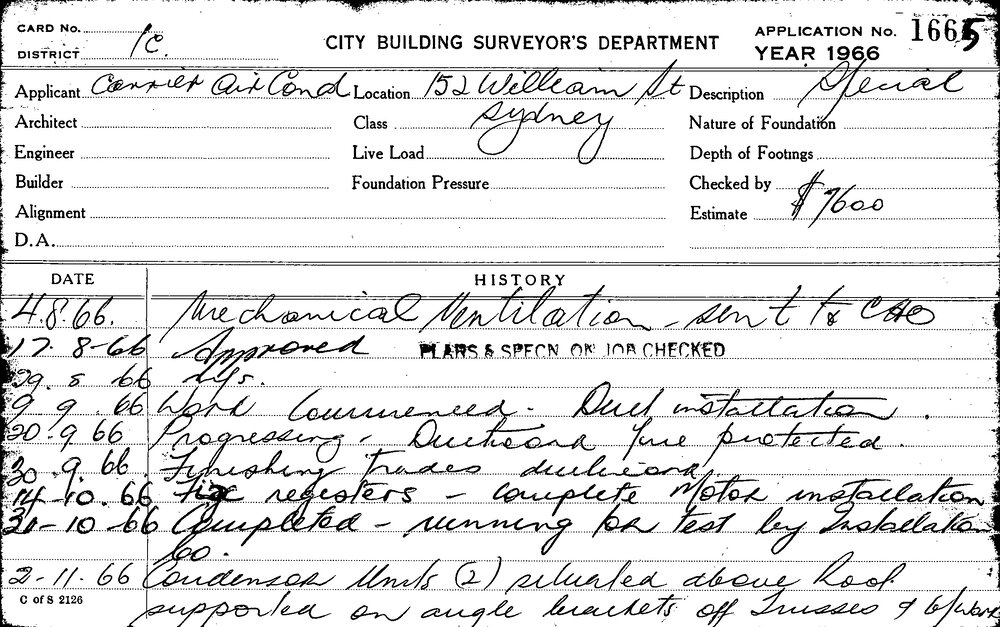 CARD No.
DISTRICT 1c.
CITY BUILDING SURVEYOR'S DEPARTMENT
APPLICATION No. 1665
YEAR 1966
Applicant Carrier Air Cond Location 152 William St Sydney Description Special
Architect Class Nature of Foundation
Engineer Live Load Depth of Footings
Builder Foundation Pressure Checked by
Alignment Estimate $7600
D.A.
DATE HISTORY
4.8.66. Mechanical Ventilation - sent to CHO
17. 8-66 Approved PLANS & SPECN. ON JOB CHECKED
29. 8 66 n/s.
9 9 . 66 Work Commenced - Duct installation .
20. 9 66 Progressing - Ductwork fire protected.
30 . 9. 66 Finishing trades ductwork,
14-10.66 Fix registers - complete Motor installation
21-10-66 Completed - running for test by Installation
Co.
2-11.66 Condensor Units (2) situated above Roof
C of S 2126 supported on angle brackets off Trusses & b/work